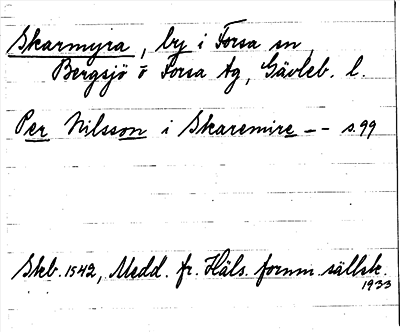 Skarmyra, by i Forsa sn,
Bergsjö o Forsa tg, Gävleb. l.
Per Nilsson i Skaremire -- s. 99
Skb. 1542, Medd. fr. Häls. fornm. sällsk.
1933